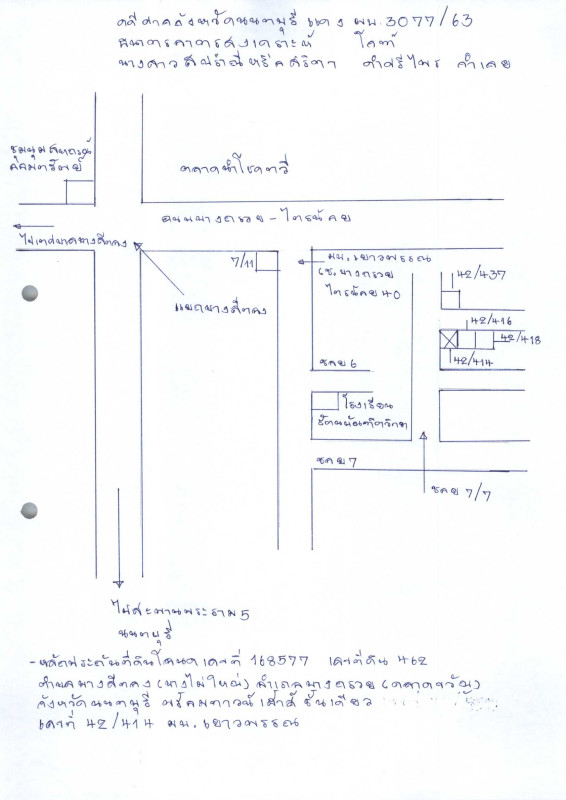 คดีศาลจังหวัดนนทบุรี แดง ผบ.3077/63
ธนาคารอาคารสงเคราะห์ โจทก์
นางสาว คำศรีไพร จำเลย
ชุมนุมสหกรณ์
ออมทรัพย์
ตลาดนำโชคทวี
ถนนบางกรวย - ไทรน้อย
ไปเทศบาลบางสีทอง
7/11
มบ.เยาวพรรณ
(ซ.บางกรวย
ไทรน้อย 40
42/437
แยกบางสีทอง
42/416
42/418
42/414
ซอย 6
โรงเรียน
รัตนบัณฑิตวิทยา
ซอย 7
ซอย 7/7
ไปสะพานพระราม 5
นนทบุรี
- หลักประกันที่ดินโฉนดเลขที่ 168577 เลขที่ดิน 462
ตำบลบางสีทอง (บางไผ่ใหญ่) อำเภอบางกรวย (ตลาดขวัญ)
จังหวัดนนทบุรี พร้อมทาวน์เฮ้าส์ ชั้นเดียว
เลขที่ 42/414 มบ.เยาวพรรณ